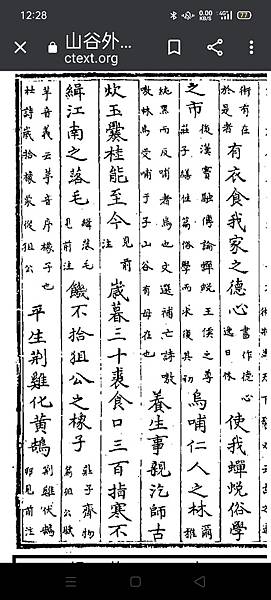 12:28
0.00 KB/S
77
山谷外…
ctext.org
術有在
於是者
有衣食我家之德心
書作德心
逸日休
使我蟬蛻俗學
之市
後漢竇融傳論蟬蛻王侯之尊
莊子繕性篇俗學而求復其初
烏哺仁人之林
爾
雅
純黑而反哺者烏也文選補亡詩嗷
嗷林烏受哺于子山谷有母在也
養生事親汔師古
炊玉爨桂能至今
見前
注
歲暮三十裘食口三百指寒不
緝江南之落毛
緝落毛
見前注
饑不拾狙公之橡子
莊子齊物
篇狙公賦
芧音義云芧音序橡子也
杜詩歲拾橡栗從狙公
平生荊雞化黃鵠
荊雞伏鵠
卵見前注